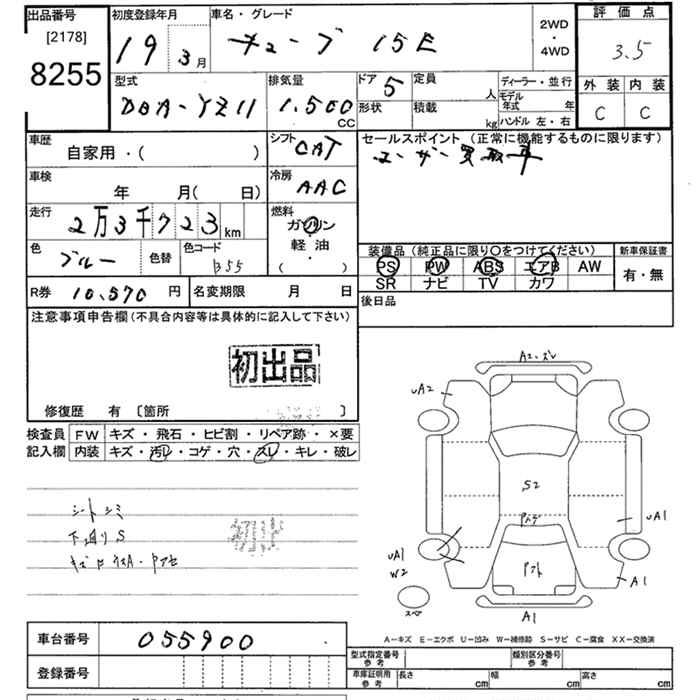 出品番号 初度登録年月 車名・グレード 2WD ・ 4WD 評価点
[2178] 8255 19 3月 キューブ 15E 3.5
型式 排気量 ドア 定員 ディーラー・並行 外装 内装
DBA-YZ11 1.500 CC 5 人 モデル年式 年 C C
形状 積載 kg ハンドル 左・右
車歴 シフト セールスポイント (正常に機能するものに限ります)
自家用・( ) CAT ユーザー買取車
車検 年 月( 日) 冷房 AAC
走行 2万3千723km 燃料 ガソリン 軽油・( )
装備品(純正品に限り○をつけてください) 新車保証書
色 ブルー 色替 色コード B55 PS PW ABS エアB AW 有・無
SR ナビ TV カワ
R券 10.570 円 名変期限 月 日 後日品
注意事項申告欄(不具合内容等は具体的に記入して下さい)
初出品
A2
修復歴 有 〔箇所 〕
検査員 FW キズ・飛石・ヒビ割・リペア跡・×要
記入欄 内装 キズ・汚レ・コゲ・穴・スレ・キレ・破レ
S2
シートシミ
下廻りS
A1
W2
A1
スペア
A1
A−キズ E−エクボ U−凹み W−補修跡 S−サビ C−腐食 XX−交換済
車台番号 055900
型式指定番号 参考 類別区分番号 参考
登録番号 車庫証明用 参考 長さ cm 幅 cm 高さ cm